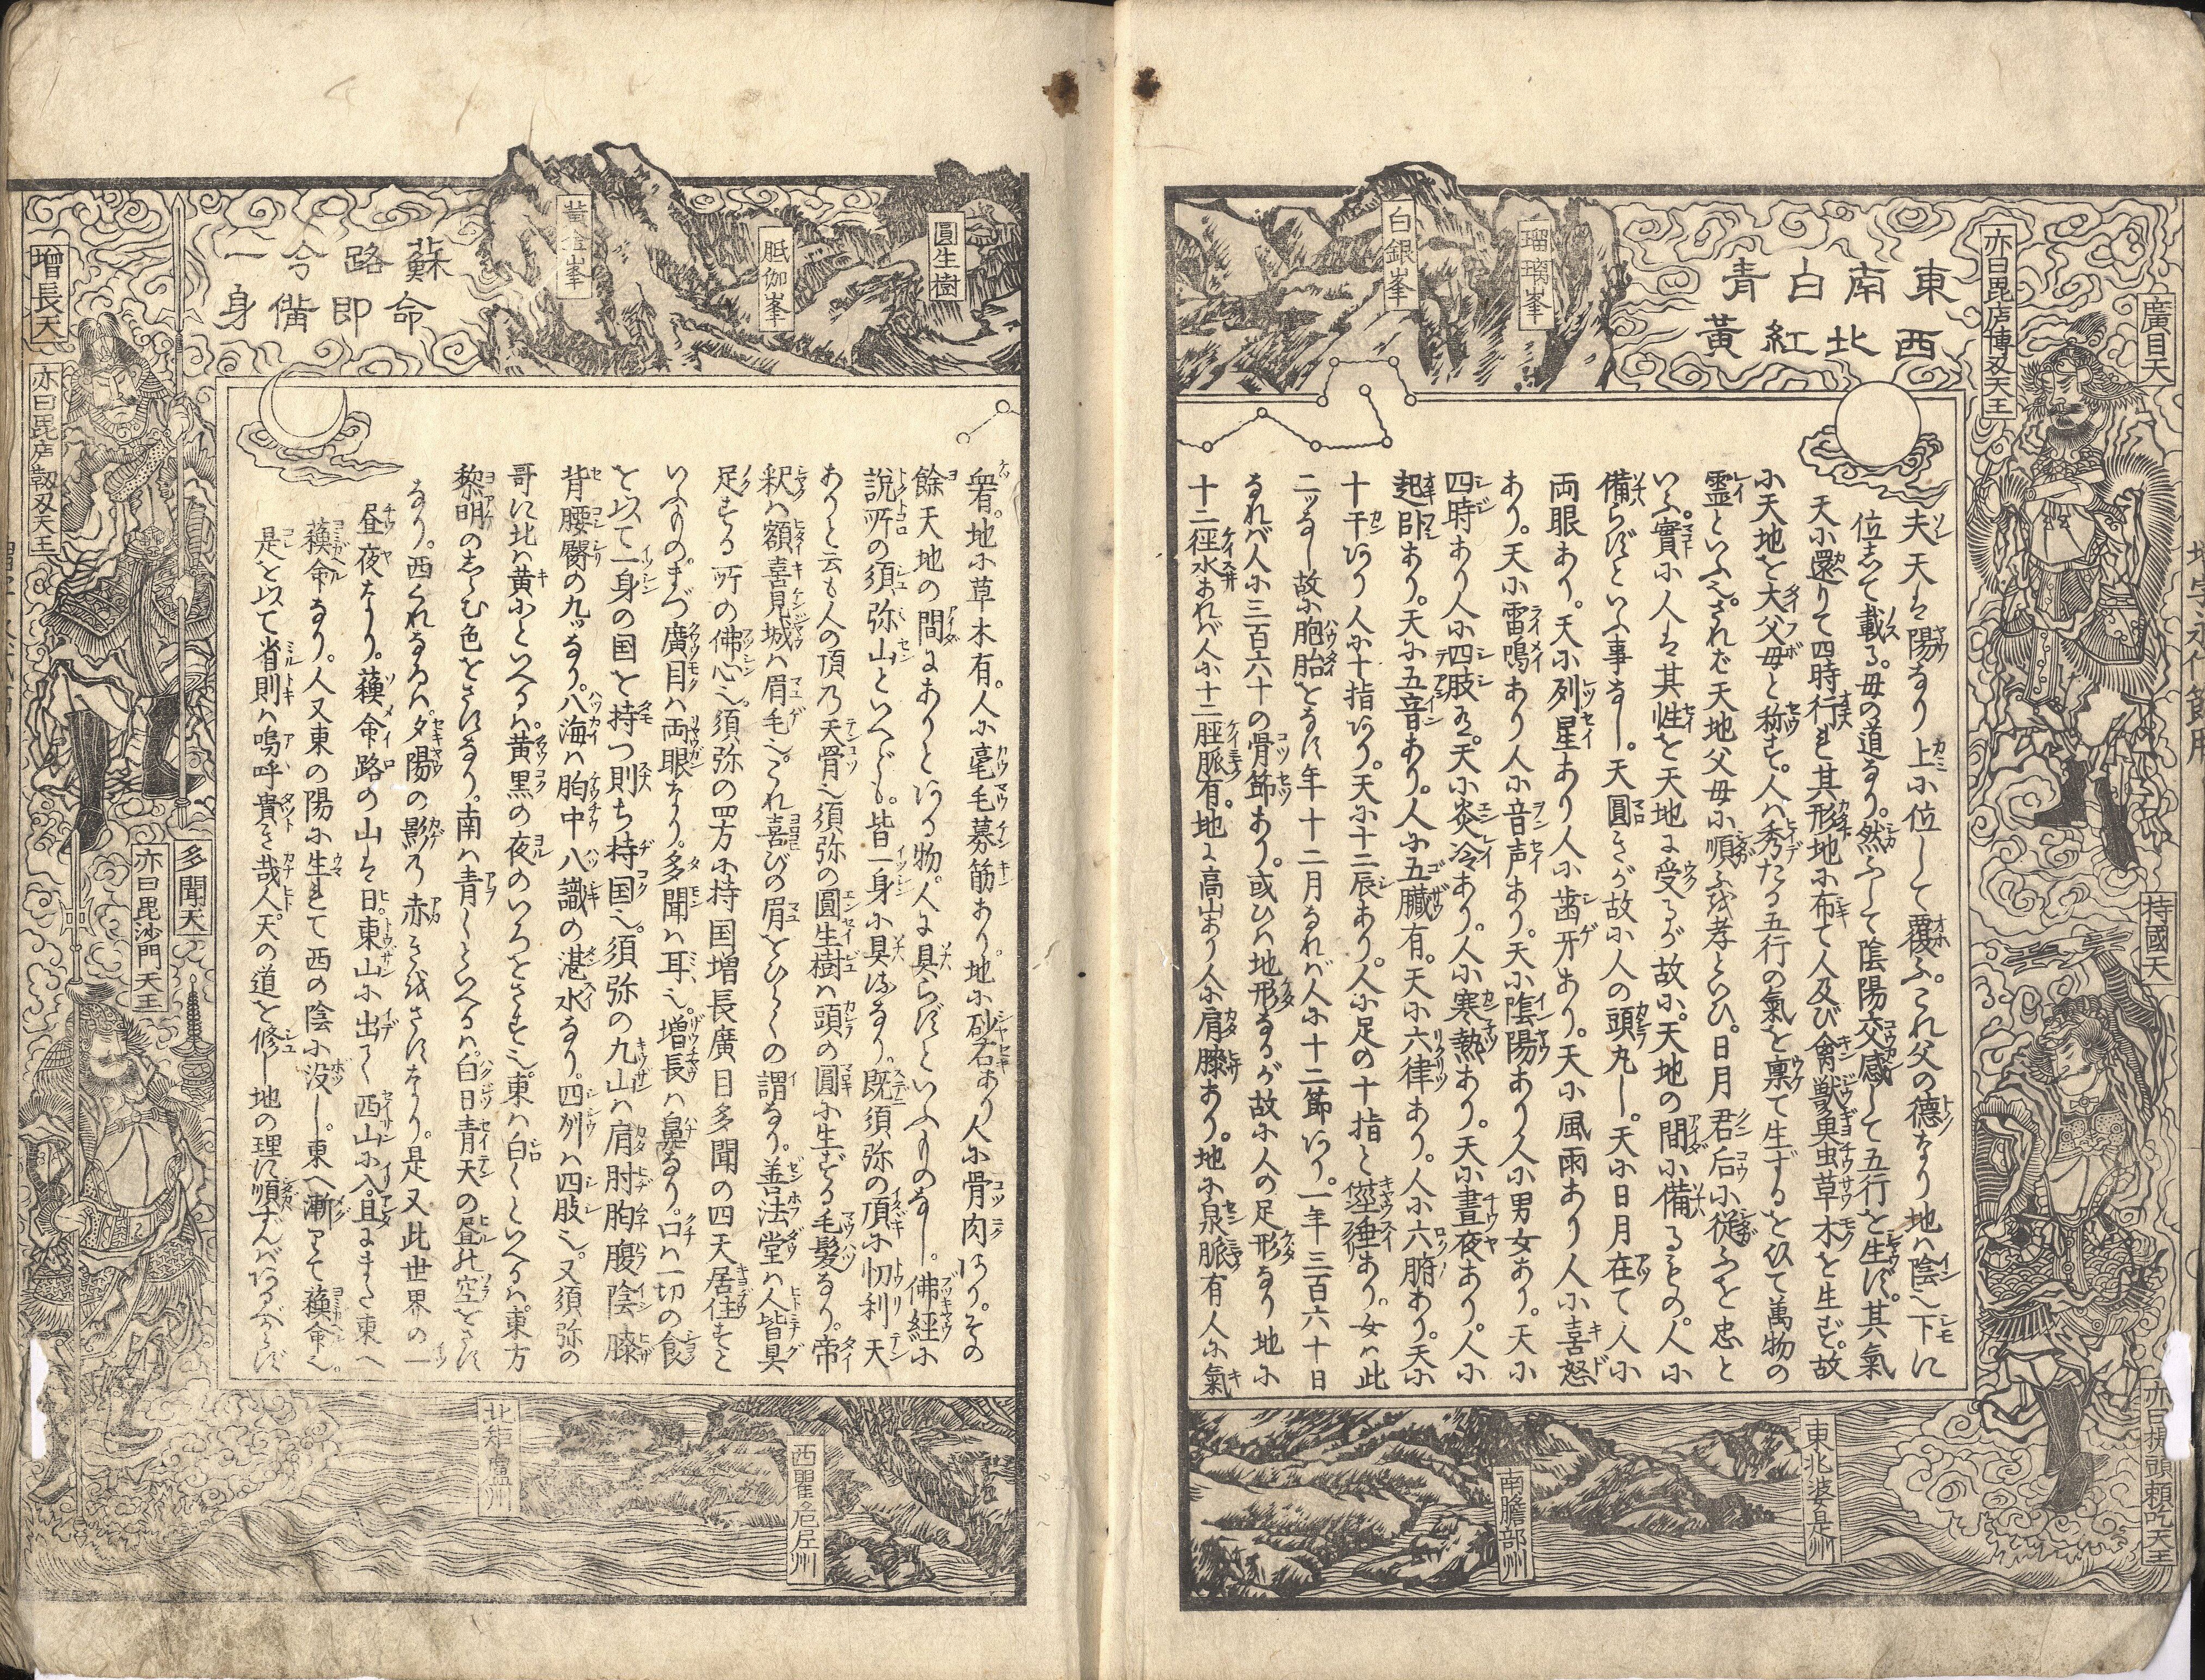 廣目天
亦曰毘店博叉天王
持國天
亦曰提頭頼吒天王
東南白青
西北紅黄
瑠璃峯
白銀峯
夫天は陽なり上に位して覆ふ。これ父の徳なり地は陰也下に
位して載る。母の道なり。然ふして陰陽交感して五行を生ず。其氣
天に還りて四時行れ其形地に布て人及び禽獣魚虫草木を生ず。故
に天地を大父母と称す。人は秀たる五行の氣を稟て生ずるを以て萬物の
霊といふ也。されば天地父母に順ふを孝といひ。日月君后に従ふを忠と
いふ。實に人は其性を天地に受るが故に。天地の間に備るもの。人に
備らずといふ事なし。天圓きが故に人の頭丸し。天に日月在て人に
両眼あり。天に列星あり人に歯牙あり。天に風雨あり人に喜怒
あり。天に雷鳴あり人に音声あり。天に陰陽あり人に男女あり。天に
四時あり人に四肢有。天に炎冷あり。人に寒熱あり。天に晝夜あり。人に
起臥あり。天に五音あり。人に五臓有。天に六律あり。人に六腑あり。天に
十干あり人に十指あり。天に十二辰あり。人に足の十指と莖垂あり。女は此
二ッなし故に胞胎をなす年十二月なれば人に十二節あり。一年三百六十日
なれば人に三百六十の骨節あり。或ひは地形なるが故に人の足形なり地に
十二径水あれば人に十二脛脈有。地に高山あり人に肩膝あり。地に泉脈有人に氣
東北婆是州
南膽部州
圓生樹
胝伽峯
黄金峯
蘇路令一
命即備身
増長天
亦曰毘店勒叉天王
多聞天
亦曰毘沙門天王
有。地に草木有。人に毫毛募筋あり。地に砂石あり人に骨肉あり。その
餘天地の間にありとある物。人に具らずといふものなし。佛經に
説所の須弥山といへども。皆一身に具はるなり。既須弥の頂に忉利天
ありと云も人の頂乃天骨也須弥の圓生樹は頭の圓に生ずる毛髪なり。帝
釈は額喜見城は眉毛也これ喜びの眉をひらくの謂なり。善法堂は人皆具
足する所の佛心也。須弥の四方に持国増長廣目多聞の四天居住すと
いふもの。まづ廣目は両眼なり。多聞は耳也。増長は鼻なり。口は一切の食
を以て一身の国を持つ則ち持国也。須弥の九山は肩肘胸腹陰膝
背腰髎の九ッなり。八海は胸中八識の湛水なり。四州は四肢也。又須弥の
哥に北は黄にといへるは黄黒の夜のいろをさす也。東は白くといへるは。東方
黎明のしらむ色をさすなり。南は青くといへるは。白日青天の昼の空をさす
なり。西くれなゐは夕陽の影乃赤きを越さすなり。是又此世界の一
昼夜なり。蘓命路の山は日。東山に出て西山に入。且にまた東へ
蘓命なり。人又東の陽に生れて西の陰に没し。東へ漸りて蘓命也。
是を以て省則は嗚呼貴き哉人。天の道を修し地の理に順ずんばあるべからず
西瞿危庄州
北矩盧州